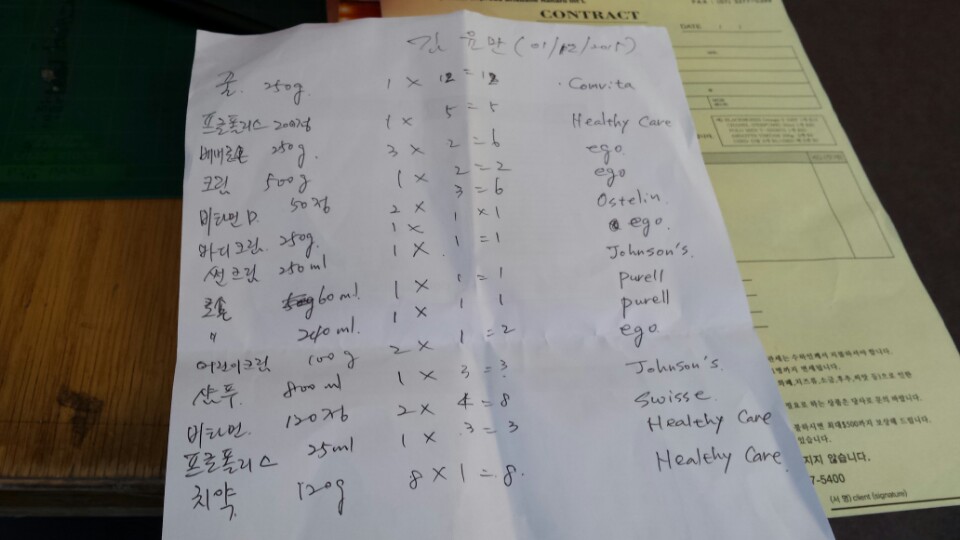 CONTRACT
DATE
김 윤만 (01/12/2015)
꿀. 250g. 1 × 12 = 12 Comvita
프로폴리스 200정 1 × 5 = 5 Healthy Care
베비로숀 250g. 3 × 2 = 6 ego
크림 500g 1 × 2 = 2 ego
비타민 D. 50정 2 × 3 = 6 Ostelin
바디크림. 250g. 1 × 1 × 1 ego.
썬크림 250ml 1 × 1 = 1 Johnson's.
로숀 60ml. 1 × 1 = 1 purell
" 240ml. 1 × 1 1 purell
어린이크림 100g 2 × 1 = 2 ego.
샴푸. 800ml 1 × 3 = 3 Johnson's.
비타민. 120정 2 × 4 = 8 Swisse.
프로폴리스 25ml 1 × 3 = 3 Healthy Care
치약 120g 8 × 1 = 8. Healthy Care.
있습니다.
지지 않습니다.
7-5400
(서 명) client (signature)